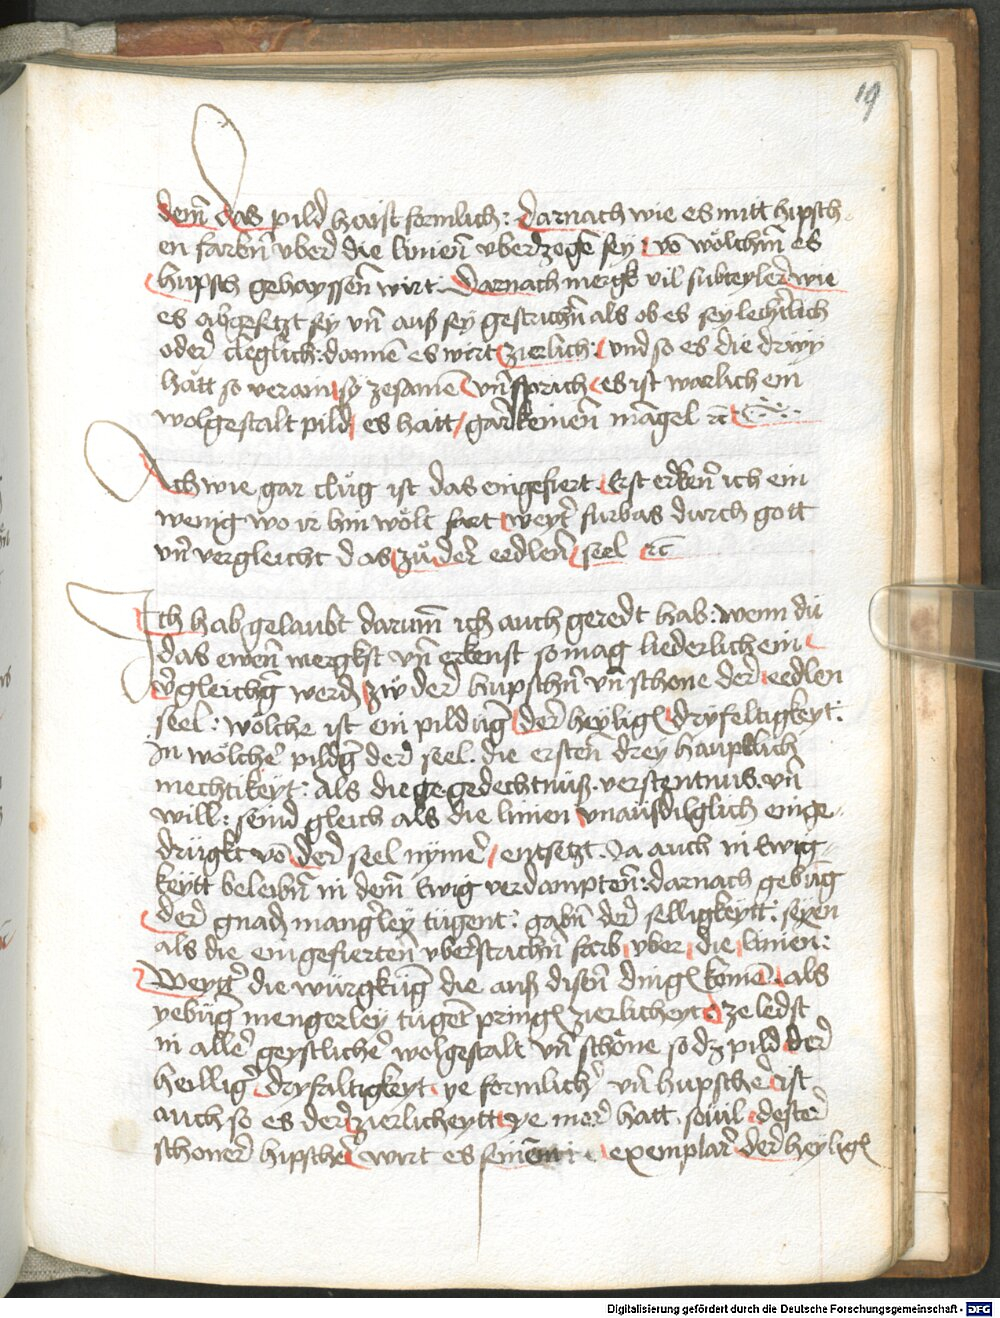 19
dem̄ das pild haist formlich: darnach wie es mitt hipsch-
en farbn̄ vber die linien̄ vberzogē sey: vō wölchm̄ es
hupsch gehayssen̄ wirt. Darnach mergk vil subteyler wie
es abgesetzt sey vn̄ auß sey gestrichn̄ als ob es sey lecherlich
oder cleglich: dannē es wirt zierlich: vnd so es die drӱ
hatt so veraint sy zesamē vn̄ sprich es ist warlich ein
wolgestalt pild es hatt gar keinen̄ mangel ꝛc̄
Ach wie gar clůg ist das eingefiert. Erst erken̄ ich ein
wenig wo ir hin wölt fart weytr̄ furbas durch gott
vn̄ vergleicht das zů der eedlen̄ seel ꝛc̄
Ich hab gelaubt darum̄ ich auch geredt hab: wenn du
das ewen̄ mergkst vn̄ erkenst so mag liederlich ein
vgleichḡ werdn̄ zw̉ der hupschn̄ vn̄ schone der eedlen
seel: wölche ist ein pildūg der heylign̄ dryfeltigkeyt:
In wölcher pildḡ der seel. die ersten̄ drey hauptlich
mechtikeyt: Als die ge gedechtnuß. verstentnus. vn̄
will: seind gleich als die linien vnausdilglich einge-
drugkt vō der seel nymer entsetzt. Ja auch in Ewig-
keytt beleibn̄ in dem̄ Ewig verdampten̄: darnach gebūg
der gnadn̄ mangerley tugent: gabn̄ der selligkeytt: seyen
als die eingefierten̄ vberstrichn̄ farb vber die linien:
Weytr̄ die würgkūg die auß disen̄ dingn̄ komē. als
yebūg mengerley tugēt pringn̄ zierlicheyt ze ledst
in aller geystlicher wolgestalt vn̄ schöne so dz pild der
heillign̄ dryfaltigkeyt ye formlicher vn̄ hupscher ist
auch so es der zierlicheytt ye mer hatt. souil dester
schoner hipscher wirt es seinem exemplar der heylign̄
Digitalisierung gefördert durch die Deutsche Forschungsgemeinschaft - DFG